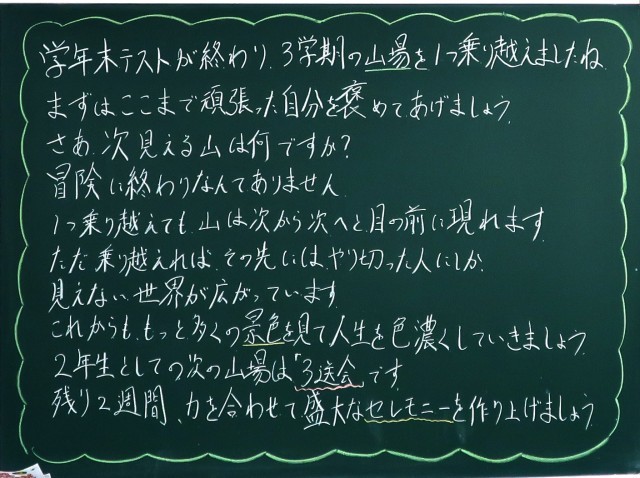 学年末テストが終わり、3学期の山場を1つ乗り越えましたね
まずはここまで頑張った自分を褒めてあげましょう
さあ、次見える山は何ですか?
冒険に終わりなんてありません
1つ乗り越えても、山は次から次へと目の前に現れます
ただ乗り越えれば、その先には、やり切った人にしか
見えない世界が広がっています
これからも、もっと多くの景色を見て人生を色濃くしていきましょう
2年生としての次の山場は「3送会」です
残り2週間、力を合わせて盛大なセレモニーを作り上げましょう